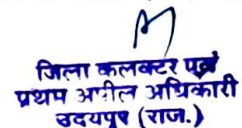 जिला कलक्टर एवं
प्रथम अपील अधिकारी
उदयपुर (राज.)